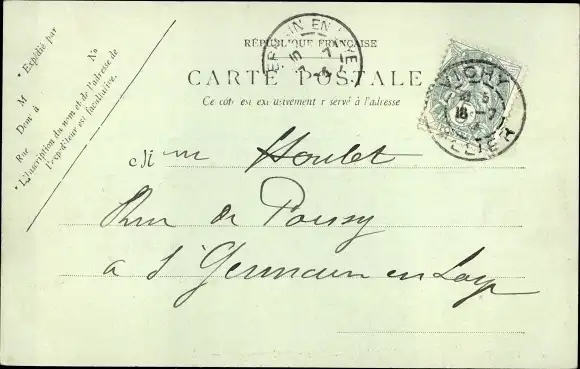 RÉPUBLIQUE FRANÇAISE
CARTE POSTALE
Ce côté est exclusivement réservé à l'adresse
* Expédié par
M
Dem^t à
Rue
N°
* L'inscription du nom et de l'adresse de
l'expéditeur est facultative.
VICHY
ALLIER
M me Houlet
Rue de Poissy
a St Germain en Laye